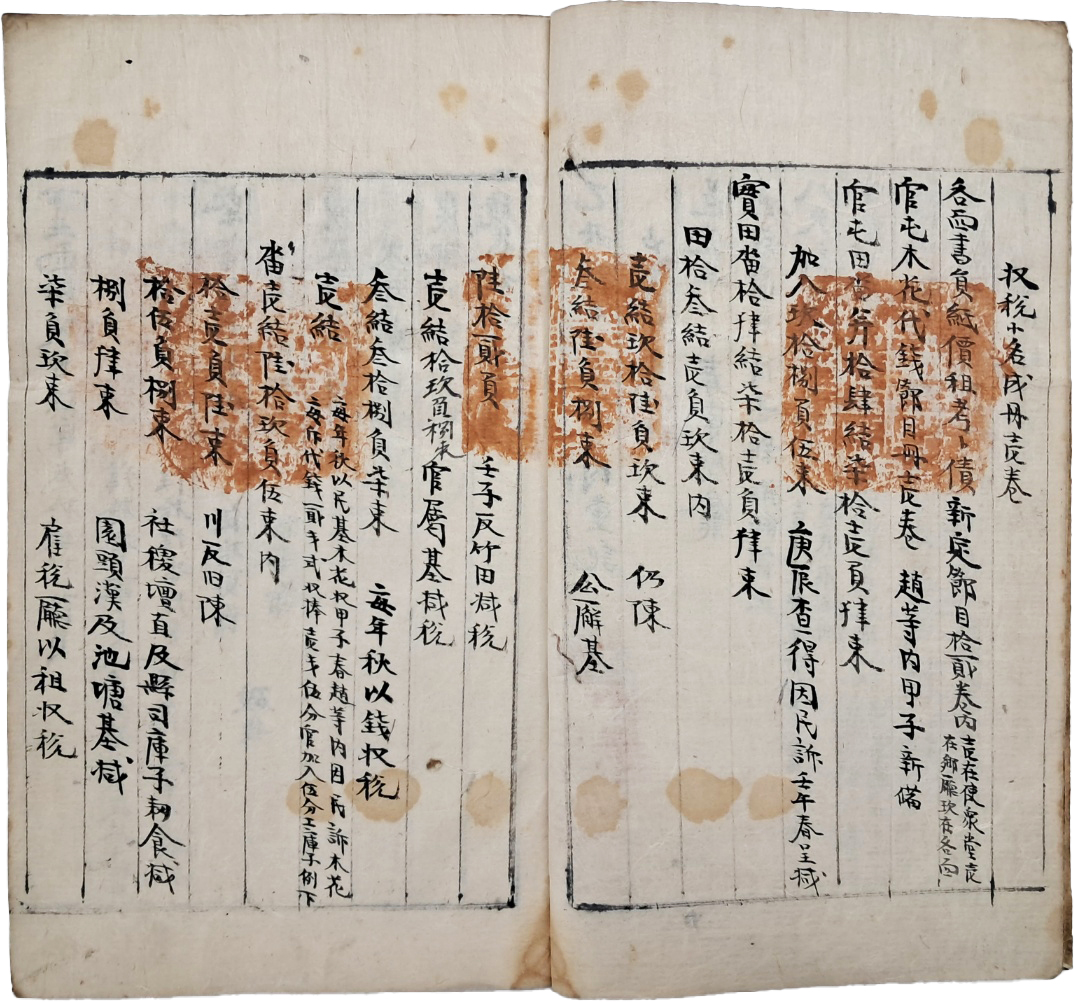 収稅小名成冊壹卷
各面書負紙價租考卜債新定節目拾貳卷內壹在使衆堂壹
在鄕廳玖在各面
官屯木花代錢節目冊壹卷 趙等內甲子新備
官屯田畓幷拾肆結柒拾壹負肆束
加入玖拾捌負伍束 庚辰查得因民訴壬午春呈減
實田畓拾肆結柒拾壹負肆束
田拾叁結壹負玖束內
壹結玖拾陸負玖束 仍陳
叁結陸負捌束 公廨基
陸拾貳負 壬子反竹田減稅
壹結拾玖負捌束 官屬基減稅
叁結叁拾捌負柒束 每年秋以錢収稅
壹結 每年秋以民基木花収甲子春趙等內因民訴木花
每斤代錢貳戔式収捧壹戔伍分官加入伍分工庫子例下
畓壹結陸拾玖負伍束內
拾壹負陸束 川反旧陳
拾伍負捌束 社稷壇直及縣司庫子耕食減
捌負肆束 園頭漢及池塘基減
柒負玖束 雇稅廳以租収稅